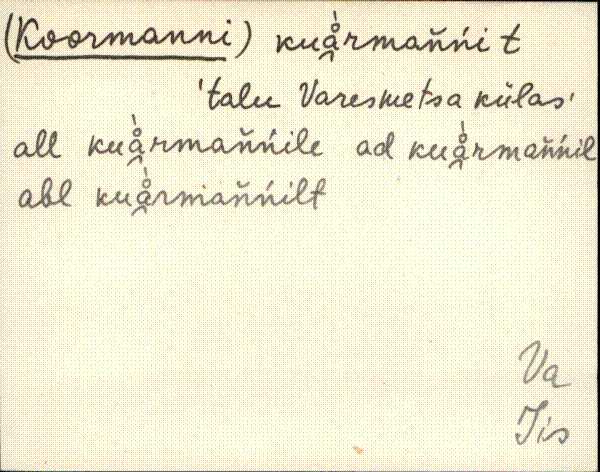 (Koormanni) kuå̯̀rmaňńi t
'talu Varesmetsa külas'
all kuå̯̀rmaňńile ad kuå̯̀rmaňńil
abl kuå̯̀rmaňńilt
Va
Jis